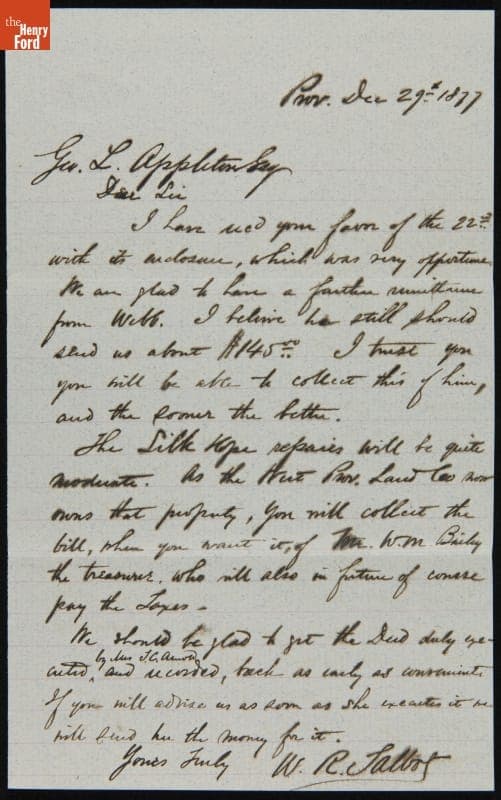 the
Henry
Ford
Prov. Dec 29th 1877
Geo. L. Appleton Esq
Dear Sir
I have recd your favor of the 22nd
with its enclosure, which was very opportune
We are glad to have a further remittance
from Webb. I believe he still should
send us about $145.00 I trust you
you will be able to collect this of him,
and the sooner the better.
The Silk Hope repairs will be quite
moderate. As the West Prov. Land Co now
owns that property, you will collect the
bill, when you want it, of Mr. Wm Bailey
the treasurer, who will also in future of course
pay the Taxes.
We should be glad to get the Deed duly exe-
by Mrs Arnold
cuted, and recorded, back as early as convenient
If you will advise us as soon as she executes it we
will send her the money for it.
Yours Truly W. R. Talbot